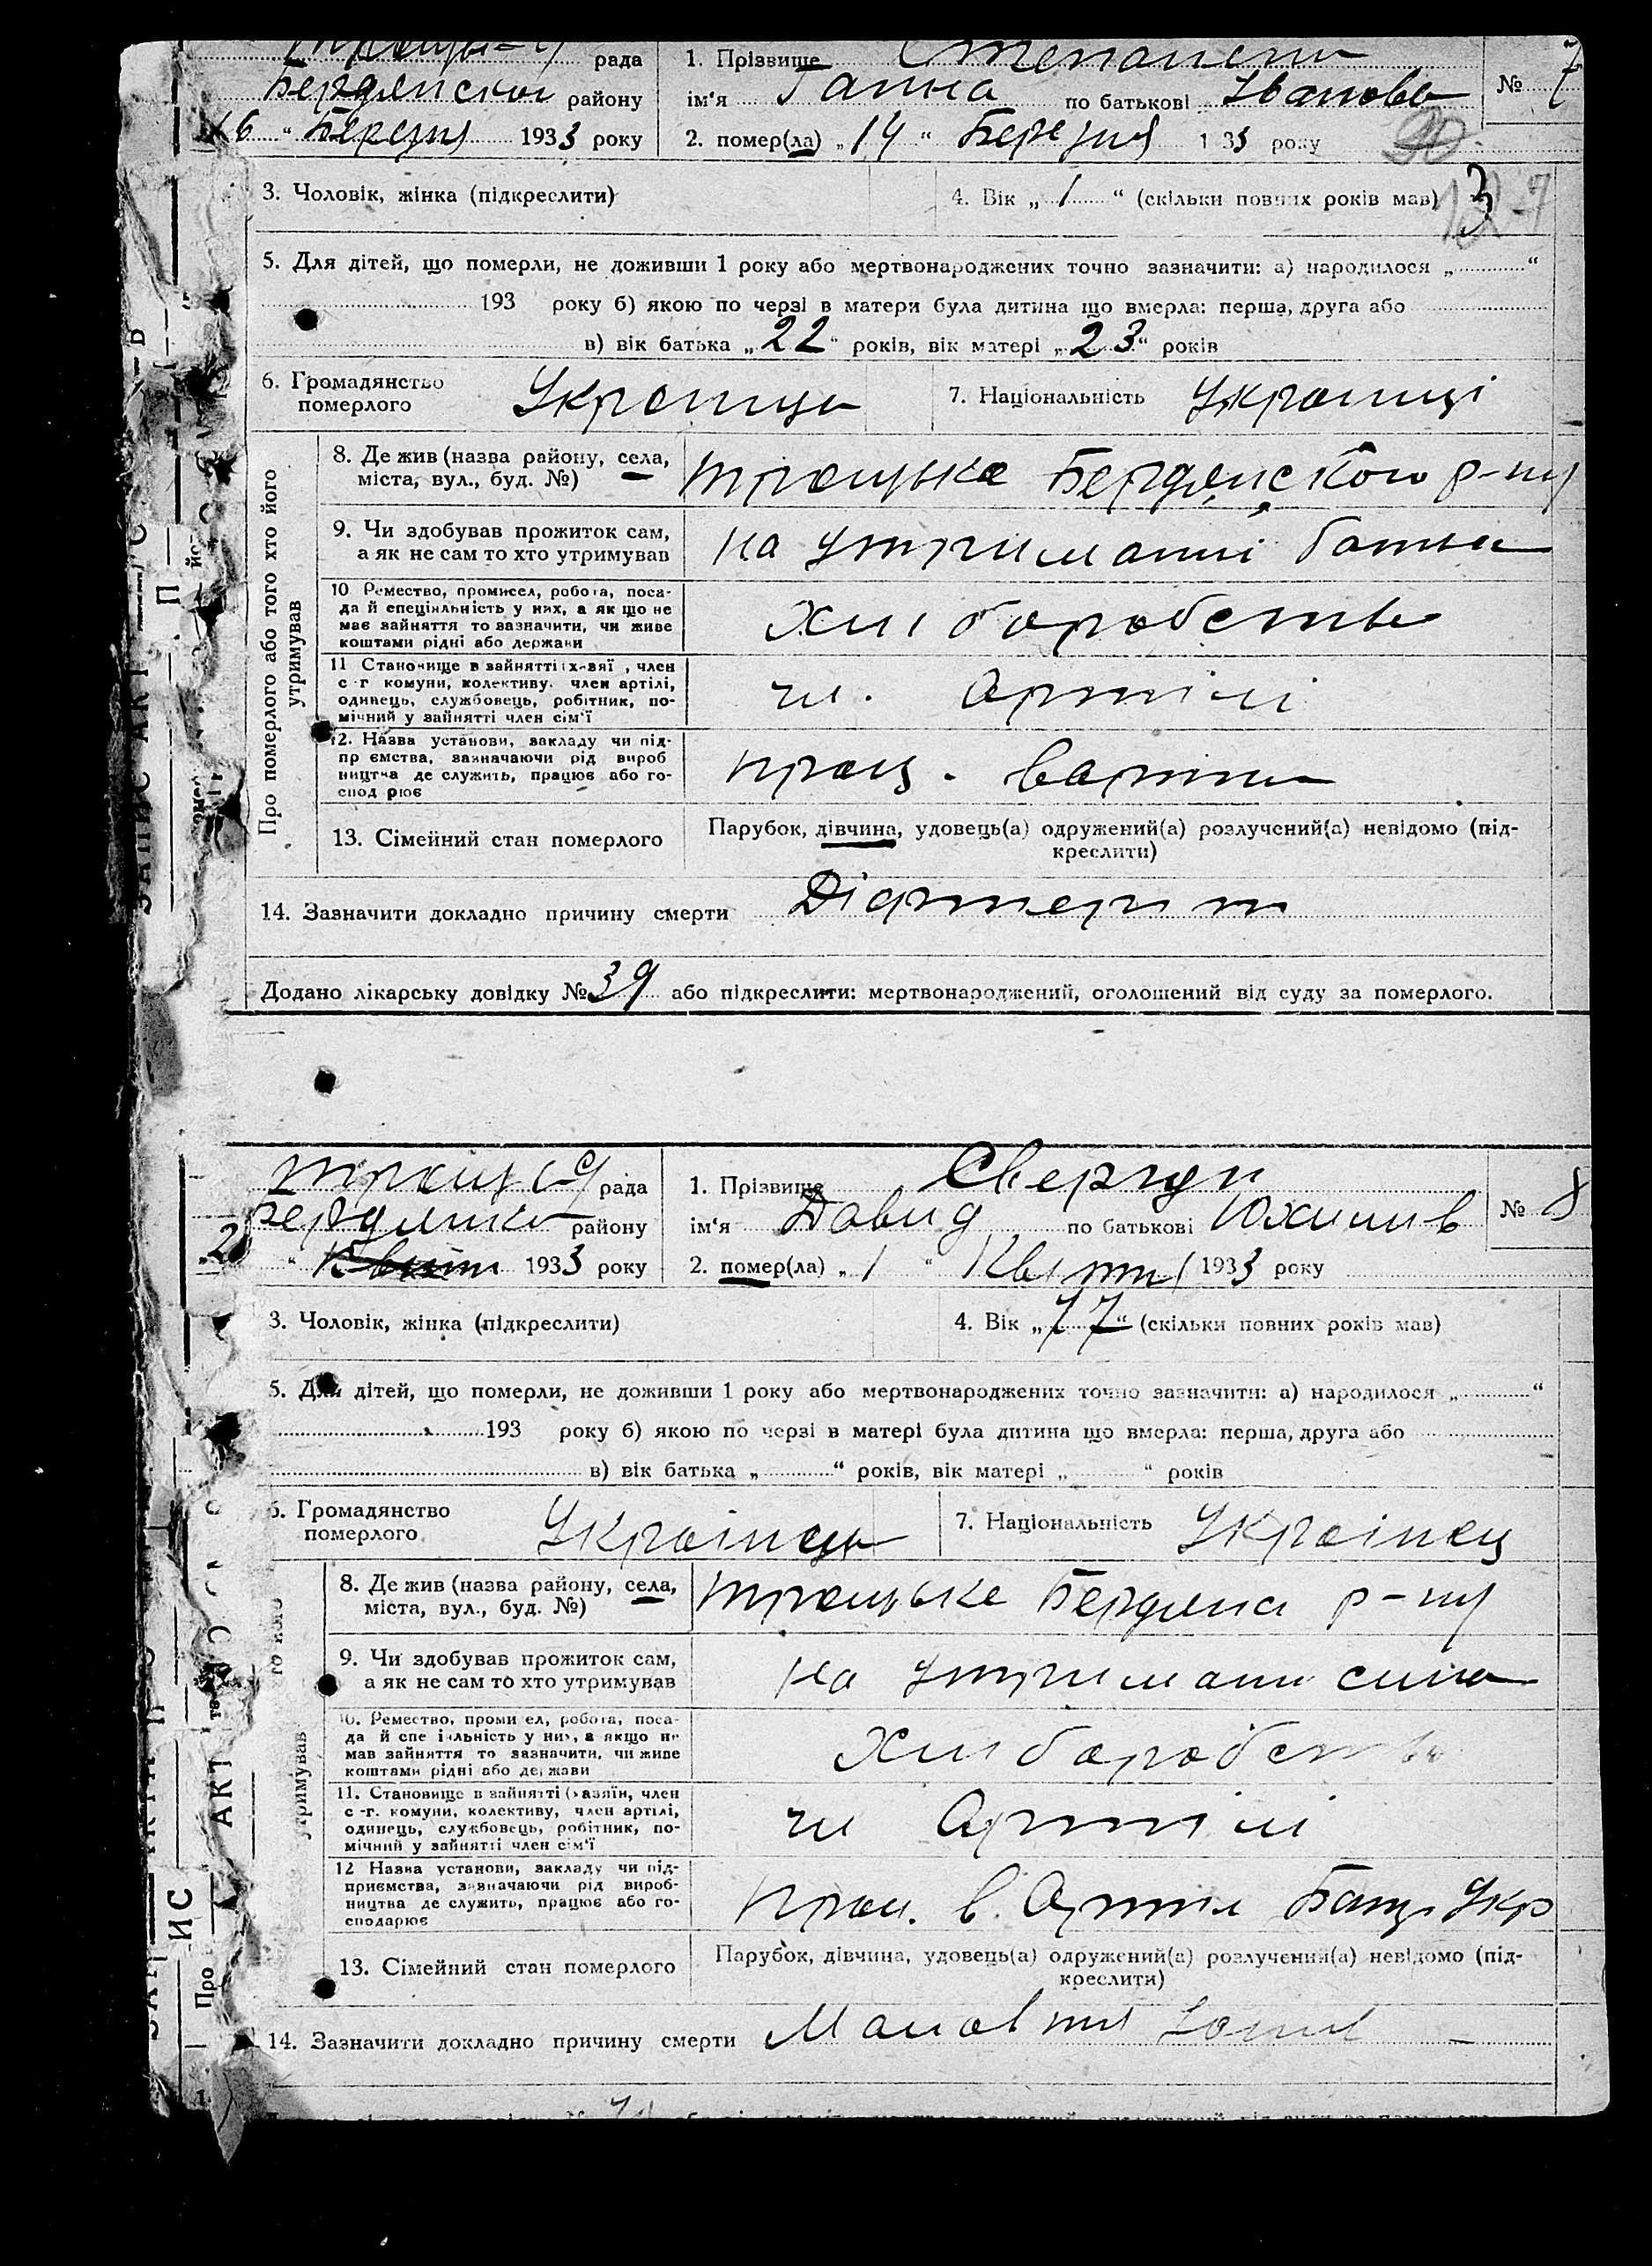 рада
Бердянського району
16 " Березня 1933 року
1. Прізвище Степаненко
ім'я Ганна по батькові Іванова
2. помер(ла) „14" Березня 1 33 року
№ 7
3. Чоловік, жінка (підкреслити)
4. Вік „1" (скільки повних років мав)
5. Для дітей, що померли, не доживши 1 року або мертвонароджених точно зазначити: а) народилося „ "
193 року б) якою по черзі в матери була дитина що вмерла: перша, друга або
в) вік батька „22" років, вік матері „23" років
6. Громадянство
померлого
7. Національність Украинці
Про померлого або того хто його
утримував
8. Де жив (назва району, села,
міста, вул., буд. №)
Троцьке Бердянського р-ну
9. Чи здобував прожиток сам,
а як не сам то хто утримував
на утриманні батька
10 Ремество, промисел, робота, поса-
да й спеціяльність у них, а як що не
має зайняття то зазначити, чи живе
коштами рідні або держави
Хліборобство
11 Становище в зайнятті (х-зяї , член
с -г комуни, колективу, член артілі,
одинець, службовець, робітник, по-
мічний у зайнятті член сім'ї
чл. Артілі
12. Назва установи, закладу чи під-
пр ємства, зазначаючи рід вироб
ництва де служить, працює або го-
спод рює
прац. в артіл
13. Сімейний стан померлого
Парубок, дівчина, удовець(а) одружений(а) розлучений(а) невідомо (під-
креслити)
14. Зазначити докладно причину смерти Діфтерит
Додано лікарську довідку № 39 або підкреслити: мертвонароджений, оголошений від суду за померлого.
рада
району
" 1933 року
1. Прізвище Свергун
ім'я Давид по батькові Юхимів
2. помер(ла) „1 " Квітня 1933 року
№ 8
3. Чоловік, жінка (підкреслити)
4. Вік „77" (скільки повних років мав)
5. Для дітей, що померли, не доживши 1 року або мертвонароджених точно зазначити: а) народилося „ "
193 року б) якою по черзі в матері була дитина що вмерла: перша, друга або
в) вік батька „ " років, вік матері „ " років
6. Громадянство
померлого
Українець
7. Національність Українец
утримував
8. Де жив (назва району, села,
міста, вул., буд. №)
Троцьке Бердянс р-ну
9. Чи здобував прожиток сам,
а як не сам то хто утримував
на утримани сина
10. Ремество, проми ел, робота, поса-
да й спе іяльність у них, а якщо не
мав зайняття то зазначити, чи живе
коштами рідні або держави
Хліборобство
11. Становище в зайнятті (хазяїн, член
с -г. комуни, колективу, член артілі,
одинець, службовець, робітник, по-
мічний у зайнятті член сім'ї
чл Артілі
12 Назва установи, закладу чи під-
приємства, зазначаючи рід вироб-
ництва де служить, працює або го-
сподарює
прац. в. Артіл Укр
13. Сімейний стан померлого
Парубок, дівчина, удовець(а) одружений(а) розлучений(а) невідомо (під-
креслити)
14. Зазначити докладно причину смерти